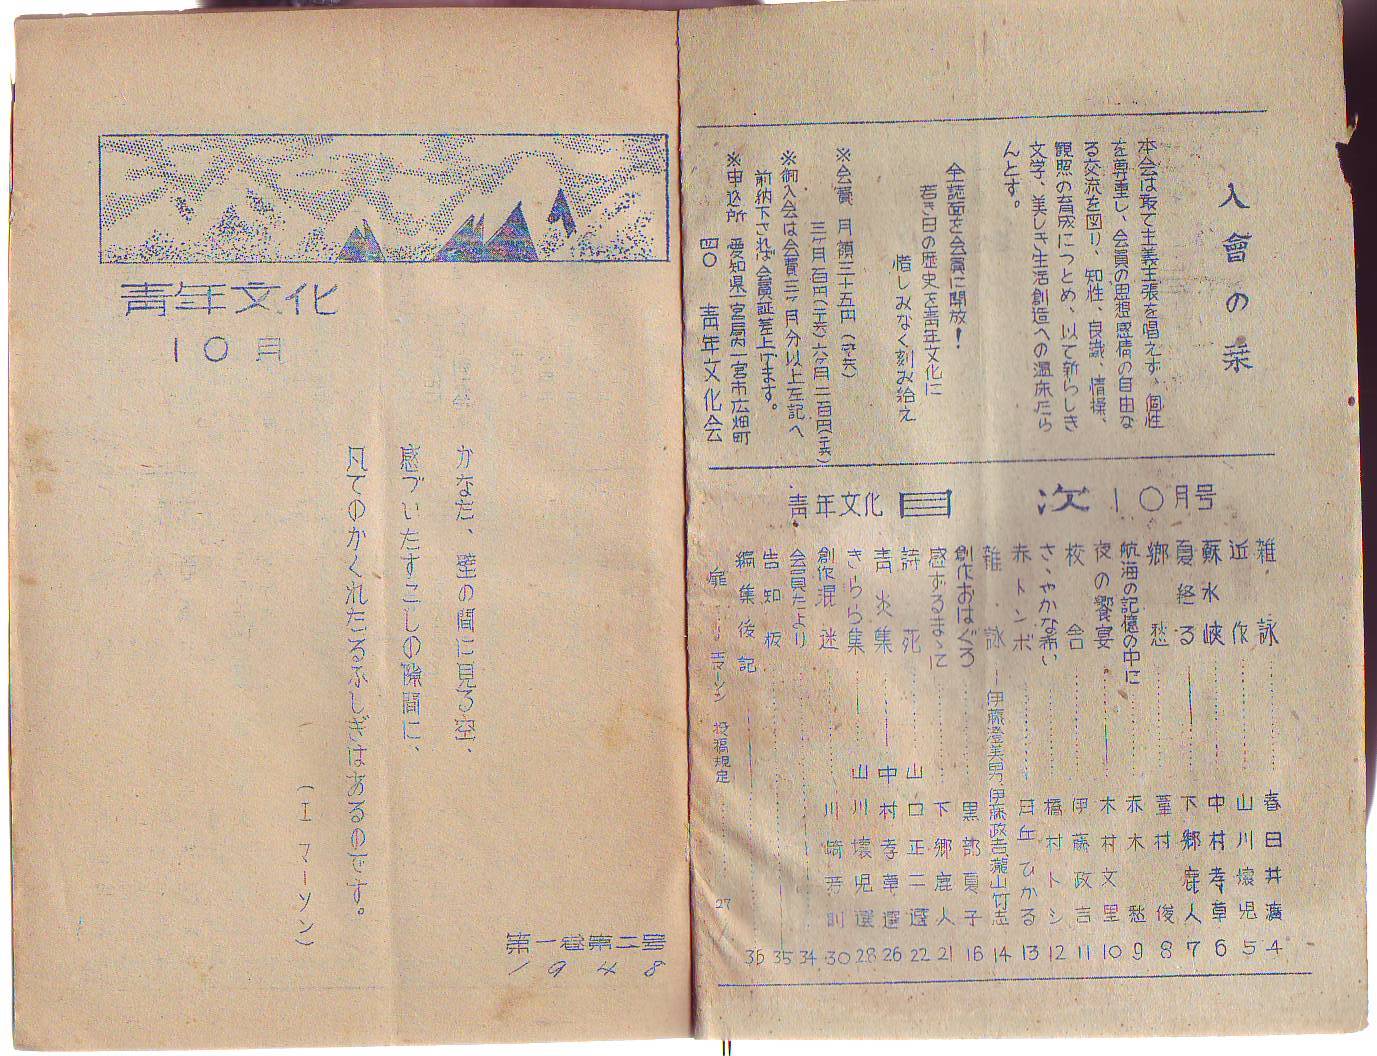 入會の栞
本会は敢て主義主張を唱えず、個性
を尊重し、会員の思想感情の自由な
る交流を図り、知性、良識、情操、
観照の育成につとめ、以て新らしき
文学、美しき生活創造への温床たら
んとす。
全誌面を会員に開放!
若き日の歴史を靑年文化に
惜しみなく刻み給え
※会費 月額三十五円
三ヶ月百円 六ヶ月二百円
※御入会は会費三ヶ月分以上左記へ
前納下されば会員証差上げます。
※申込所 愛知県一宮局内一宮市広畑町
四〇 靑年文化会
靑年文化 目次 10月号
雑詠 春日井瀇 4
近作 山川壊児 5
蘇水峡 中村孝草 6
夏終る 下郷鹿人 7
郷愁 葦村俊 8
航海の記憶の中に 赤木愁 9
夜の饗宴 木村文里 10
校舎 伊藤政吉 11
さゝやかな希い 橋村トシ 12
赤トンボ 日丘ひかる 13
雑詠 伊藤澄美男 伊藤政吉 瀧山竹志 14
創作おはぐろ 黒部夏子 16
感ずるまゝに 下郷鹿人 21
詩 死 山口正二選 22
靑炎集 中村孝草選 26
きらら集 山川壊児選 28
創作混迷 川崎芳訓 30
会員たより 34
告知板 35
編集後記 36
扉 エマーソン 投稿規定 27
靑年文化
10月
かなた、壁の間に見る空、
感づいたすこしの隙間に、
凡てのかくれたるふしぎはあるのです。
(エマーソン)
第一巻第二号
1948